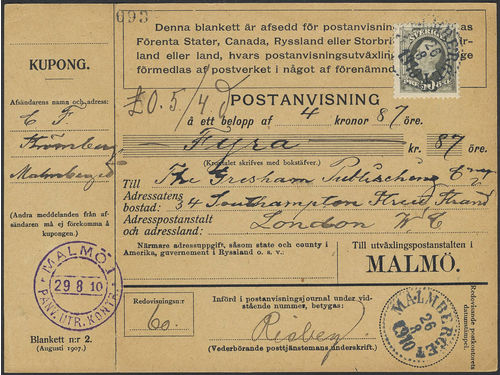 693
Denna blankett är afsedd för postanvisning
Förenta Stater, Canada, Ryssland eller Storbri
land eller land, hvars postanvisningsutväxling
förmedlas af postverket i något af förenämnd
SVERIGE
KUPONG.
Afsändarens namn och adress:
C F.
Strömberg
Malmberget
(Andra meddelanden från afsändaren må ej förekomma å kupongen.)
MALMÖ 1
29 8 10
PAKV. UTR. KONTR.
Blankett n:r 2.
(Augusti 1907.)
£0. 5/4 d
POSTANVISNING
å ett belopp af 4 kronor 87 öre.
Fyra kr. 87 öre.
(Krontalet skrifves med bokstäfver.)
Till The Gresham Publischeng
Adressatens
bostad: 34 Southampton Street Strand
Adresspostanstalt
och adressland: London W C
Närmare adressuppgift, såsom state och county i
Amerika, guvernement i Ryssland o. s. v.:
Till utväxlingspostanstalten i
MALMÖ.
Redovisningsn:r
60.
Införd i postanvisningsjournal under vid-
stående nummer, betygas:
Risberg
(Vederbörande posttjänstemans underskrift.)
MALMBERGET
26
8
1910
Redovisande postkontorets
datumstämpel.